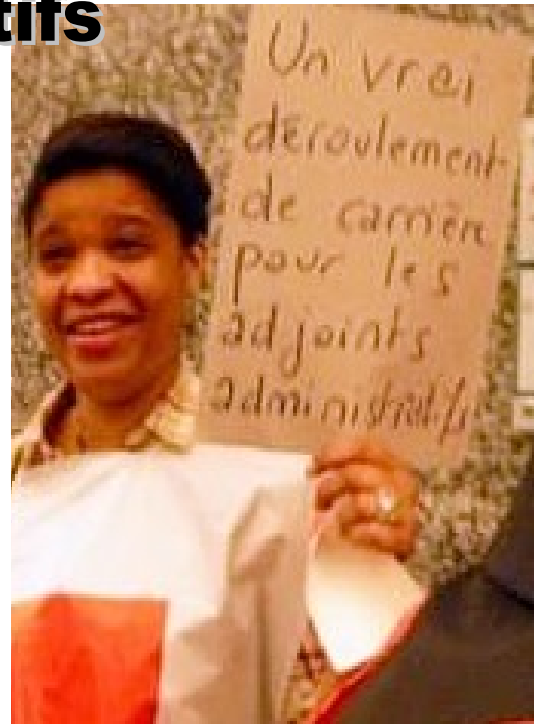 tifs
Un vrai
déroulement
de carrière
pour les
adjoints
administratifs